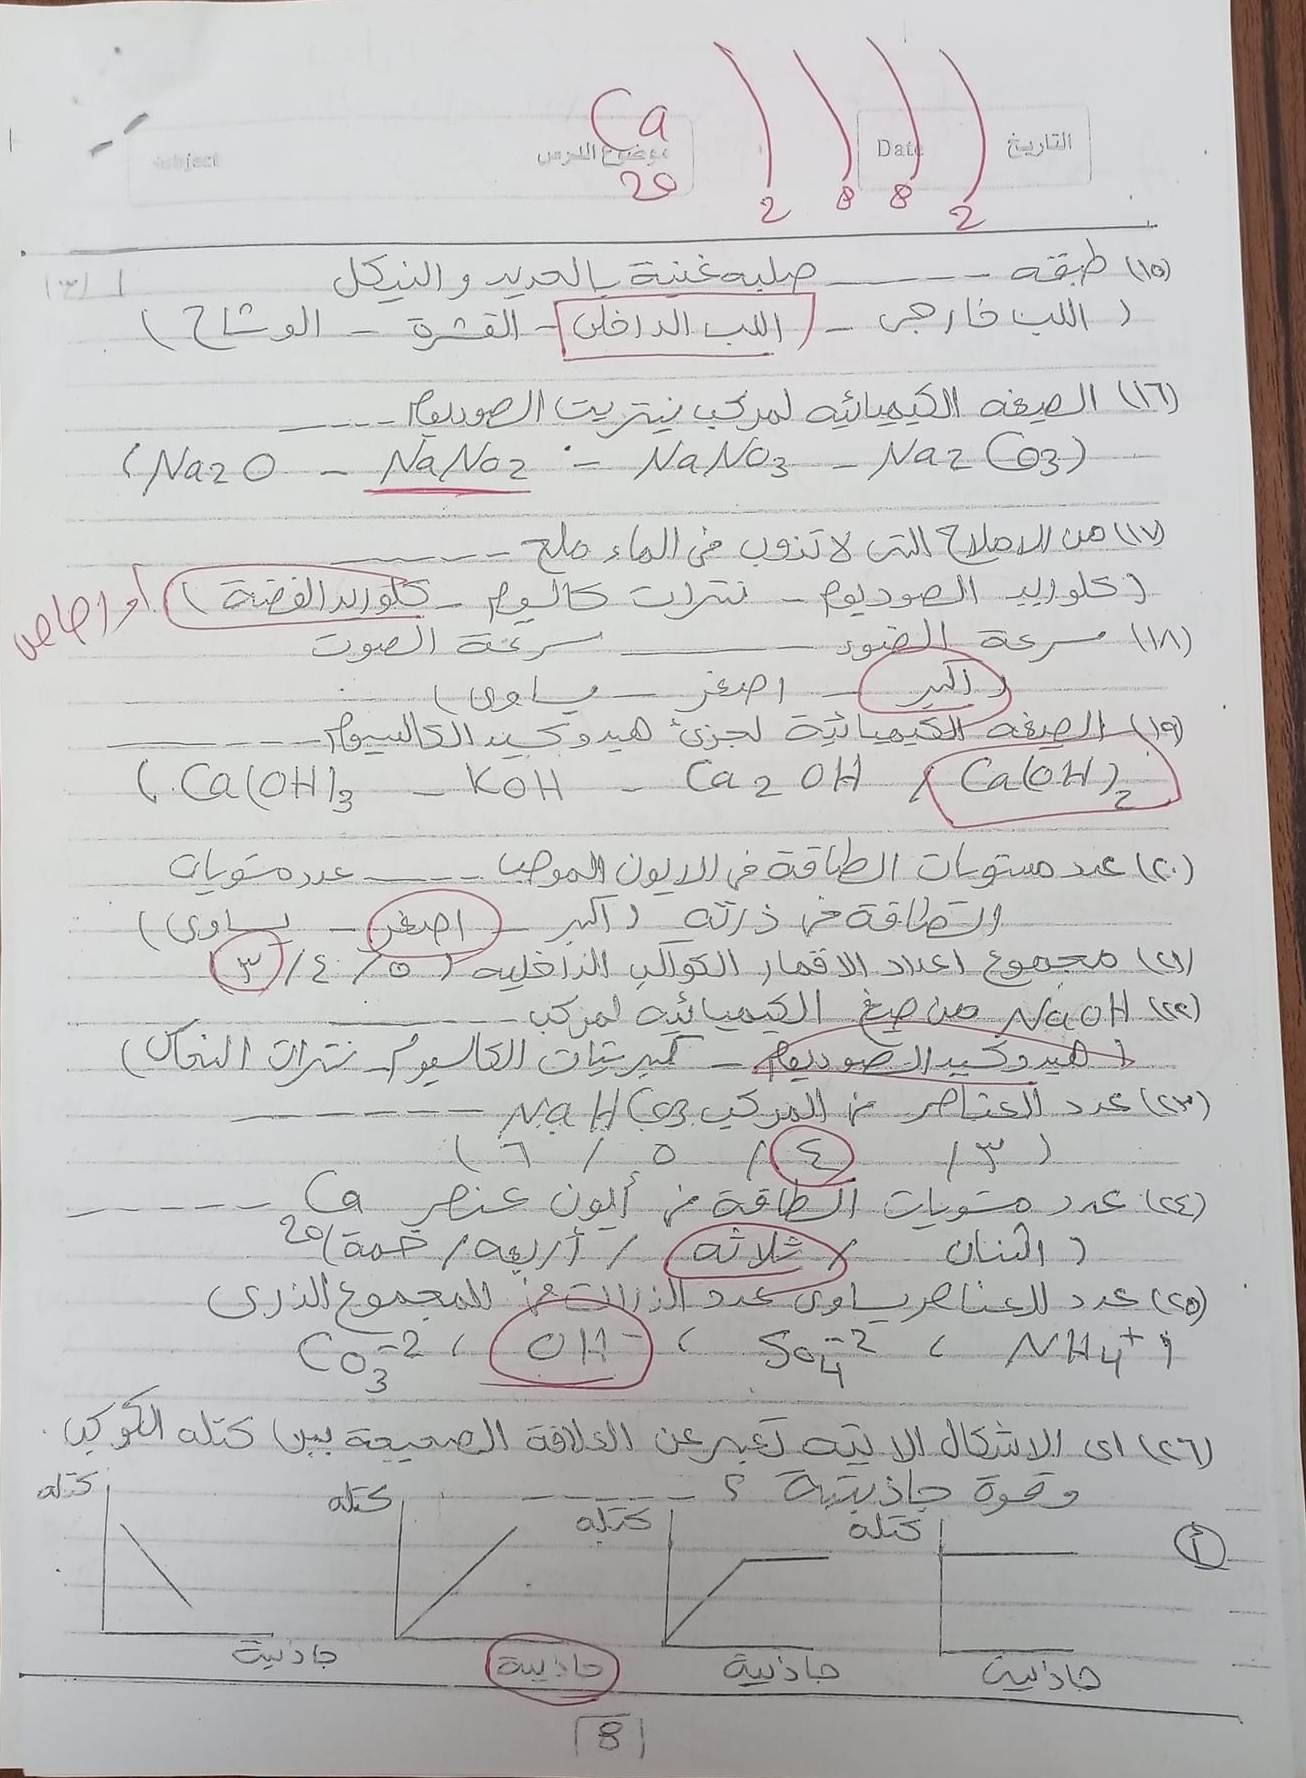 Ca
20
2 8 8 2
التاريخ
Date
موضوع الدرس
Subject
(١٥) طبقه ---- صلبه غنية بالحديد والنيكل
( اللب خارجى - اللب الداخلى - القشرة - الوشاح )
(١٦) الصيغه الكيميائيه لمركب نيتريت الصوديوم ----
(Na2O - NaNo2 - NaNO3 - Na2CO3)
(١٧) من الاملاح التى لا تذوب فى الماء ملح ----
( كلوريد الصوديوم - نترات كالسيوم - كلوريد الفضة ) أو رصاص
(١٨) سرعة الضوء ---- سرعة الصوت
( اكبر - اصغر - يساوى )
(١٩) الصيغه الكيميائية لجزئ هيدروكسيد الكالسيوم ----
(Ca(OH)3 - KOH - Ca2OH / Ca(OH)2
(٢٠) عدد مستويات الطاقة فى الايون الموجب ---- عدد مستويات
الطاقة فى ذرته ( اكبر - اصغر - يساوى )
(٢١) مجموع اعداد الاقمار الكواكب الداخليه ( ٥ / ٤ / ٣ )
(٢٢) NaOH من صيغ الكيميائيه لمركب ----
( هيدروكسيد الصوديوم - كبريتات الكالسيوم - نترات النحاس )
(٢٣) عدد العناصر فى المركب NaHCO3 -----
( ٣ / ٤ / ٥ / ٦ )
(٢٤) عدد مستويات الطاقة فى أيون عنصر Ca -----
( اثنان / ثلاثه / أربعه / خمسة ) 20
(٢٥) عدد العناصر يساوى عدد الذرات فى المجموع الذرى
CO3-2 ، OH- ، SO4-2 ، NH4+
(٢٦) اى الاشكال الاتيه تعبر عن العلاقة الصحيحة بين كتله الكوكب
وقوة جاذبيتة ؟ ----
أ
كتله
كتله
كتله
كتله
جاذبية
جاذبية
جاذبية
جاذبية
8